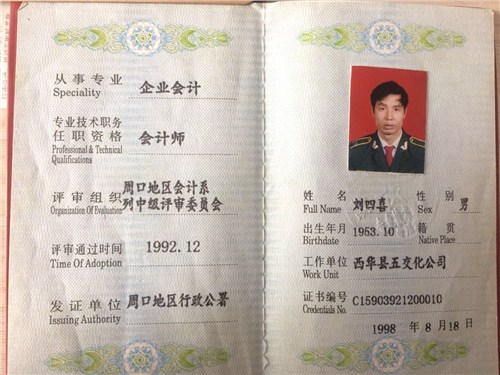 从事专业 企业会计
Speciality
专业技术职务
任职资格 会计师
Professional & Technical
Qualifications
评审组织 周口地区会计系
Organization Of Evaluation 列中级评审委员会
评审通过时间 1992.12
Time Of Adoption
发证单位 周口地区行政公署
Issuing Authority
姓名 刘四喜 性别 男
Full Name Sex
出生年月 1953.10 籍贯
Birthdate Native Place
工作单位 西华县五交化公司
Work Unit
证书编号 C15903921200010
Credentials No.
1998 年 8 月 18 日